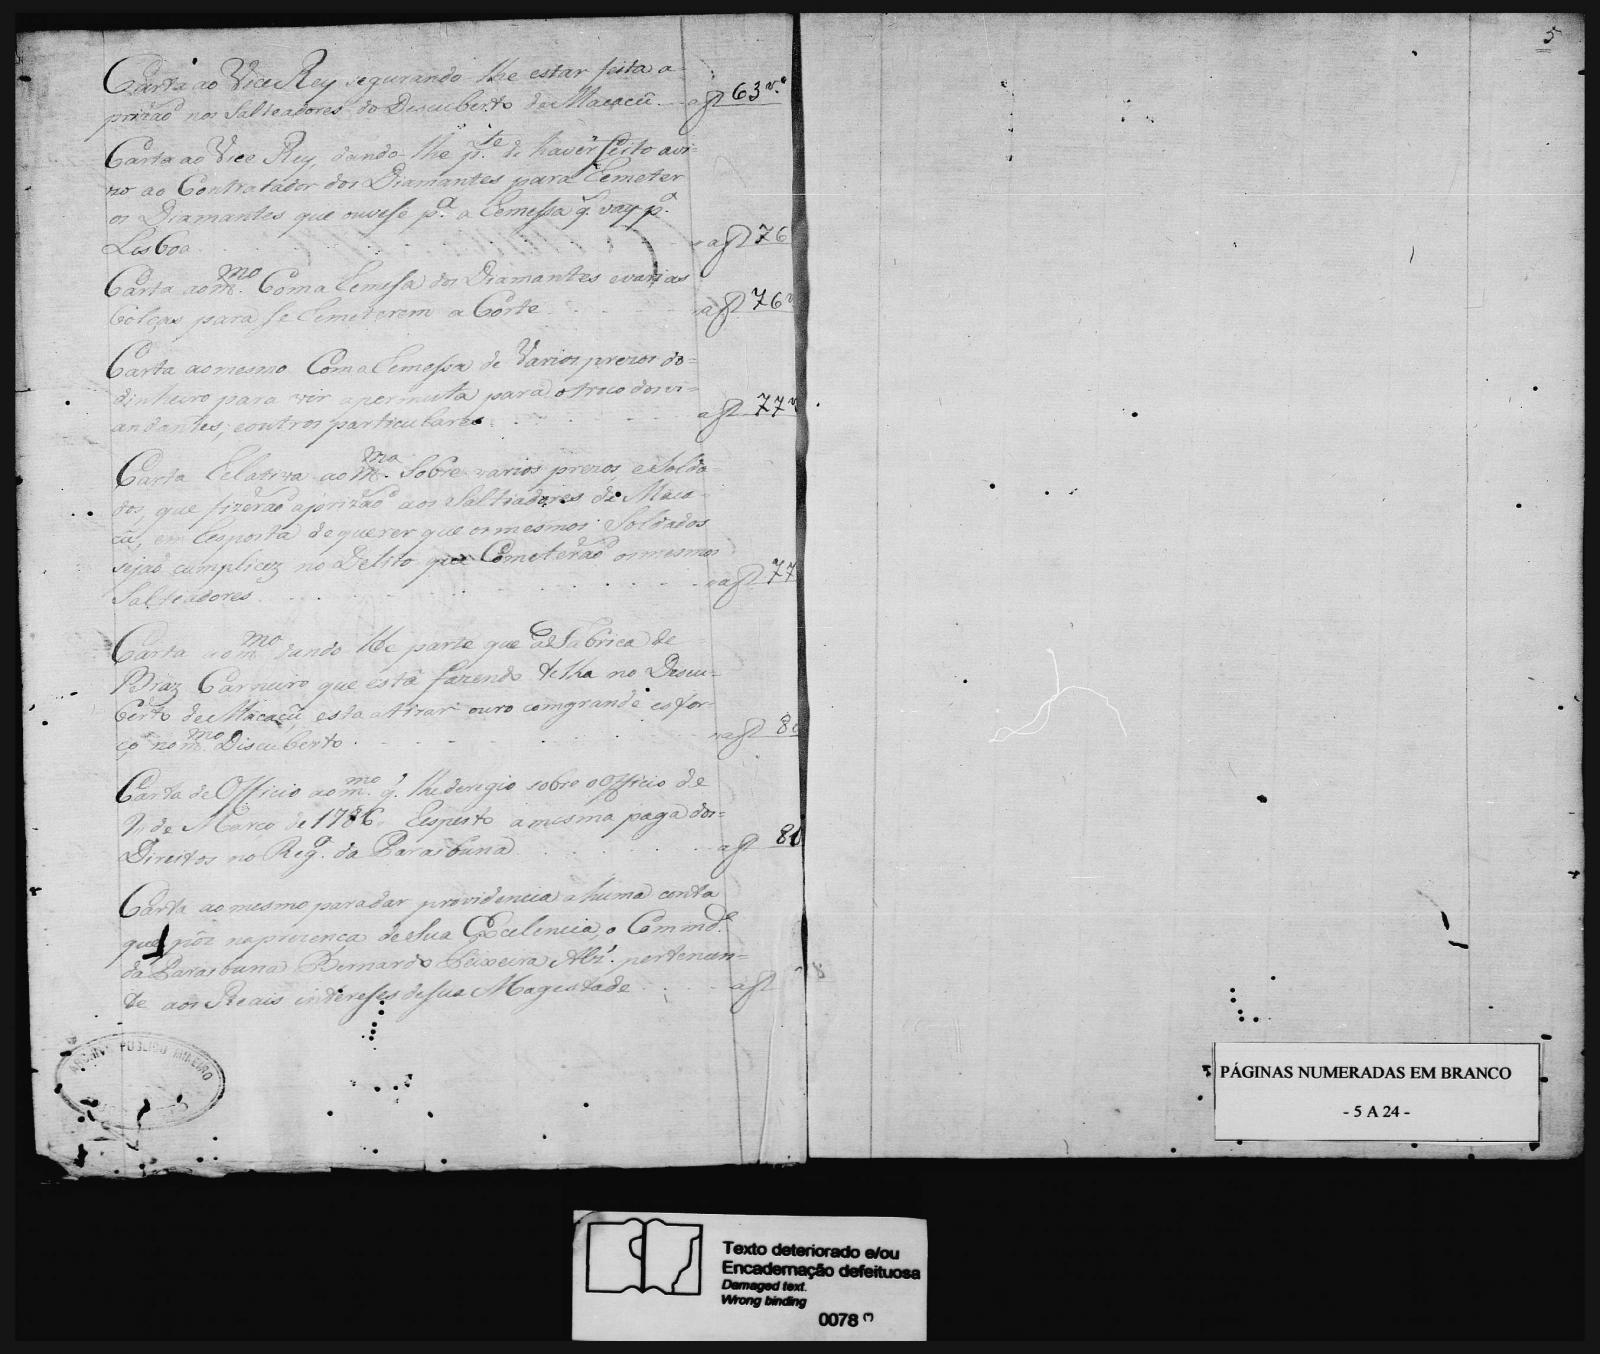 Carta ao Vice Rey segurando lhe estar feita a-
prizaõ nos Salteadores do Descuberto de Macacû --- a f 63 v.º
Carta ao Vice Rey, dando-lhe p.te de haver feito avi-
zo ao Contratador dos Diamantes para Remeter
os Diamantes que ouvese p.ª a Remessa q̃ vay p.ª
Lisboa a f 76
Carta ao m.mo Com a Remesa dos Diamantes e varias
bolças para se Remeterem a Côrte a f 76 v
Carta ao mesmo Com a Remessa de Varios prezos do=
dinheiro para vir a permuta para o troco dos vi=
andantes, e outros particulares a f 77 v
Carta Relativa ao m.mo Sobre varios prezos, e Solda-
dos, que fizeraõ a prizaõ aos Saltiadores de Maca-
cû, em Resposta de querer que os mesmos Soldados
sejaõ cumplicez no Delito que Cometeraõ os mesmos
Salteadores a f 77
Carta ao m.mo dando lhe parte que a Fabrica de
Braz Carneiro que está fazendo telha no Descu-
berto de Macacû, esta a tirar ouro com grande esfor-
ço no m.mo Discuberto a f 80
Carta de Officio ao m.mo q̃ lhe deregio sobre o Officio de
de Março de 1786 Respeito a mesma paga dos=
Direitos no Reg.º da Paraibuna a f 81
Carta ao mesmo para dar providencia a huma conta
que pôz na prezença de Sua Excelencia, o Comind.e
da Paraibuna Bernardo Teixeira Alz'. pertencen=
te aos Reais intereses de Sua Magestade a f
ARCHIVO PUBLICO MINEIRO
5
PÁGINAS NUMERADAS EM BRANCO
- 5 A 24 -
Texto deteriorado e/ou
Encadernação defeituosa
Damaged text.
Wrong binding
0078 (3)